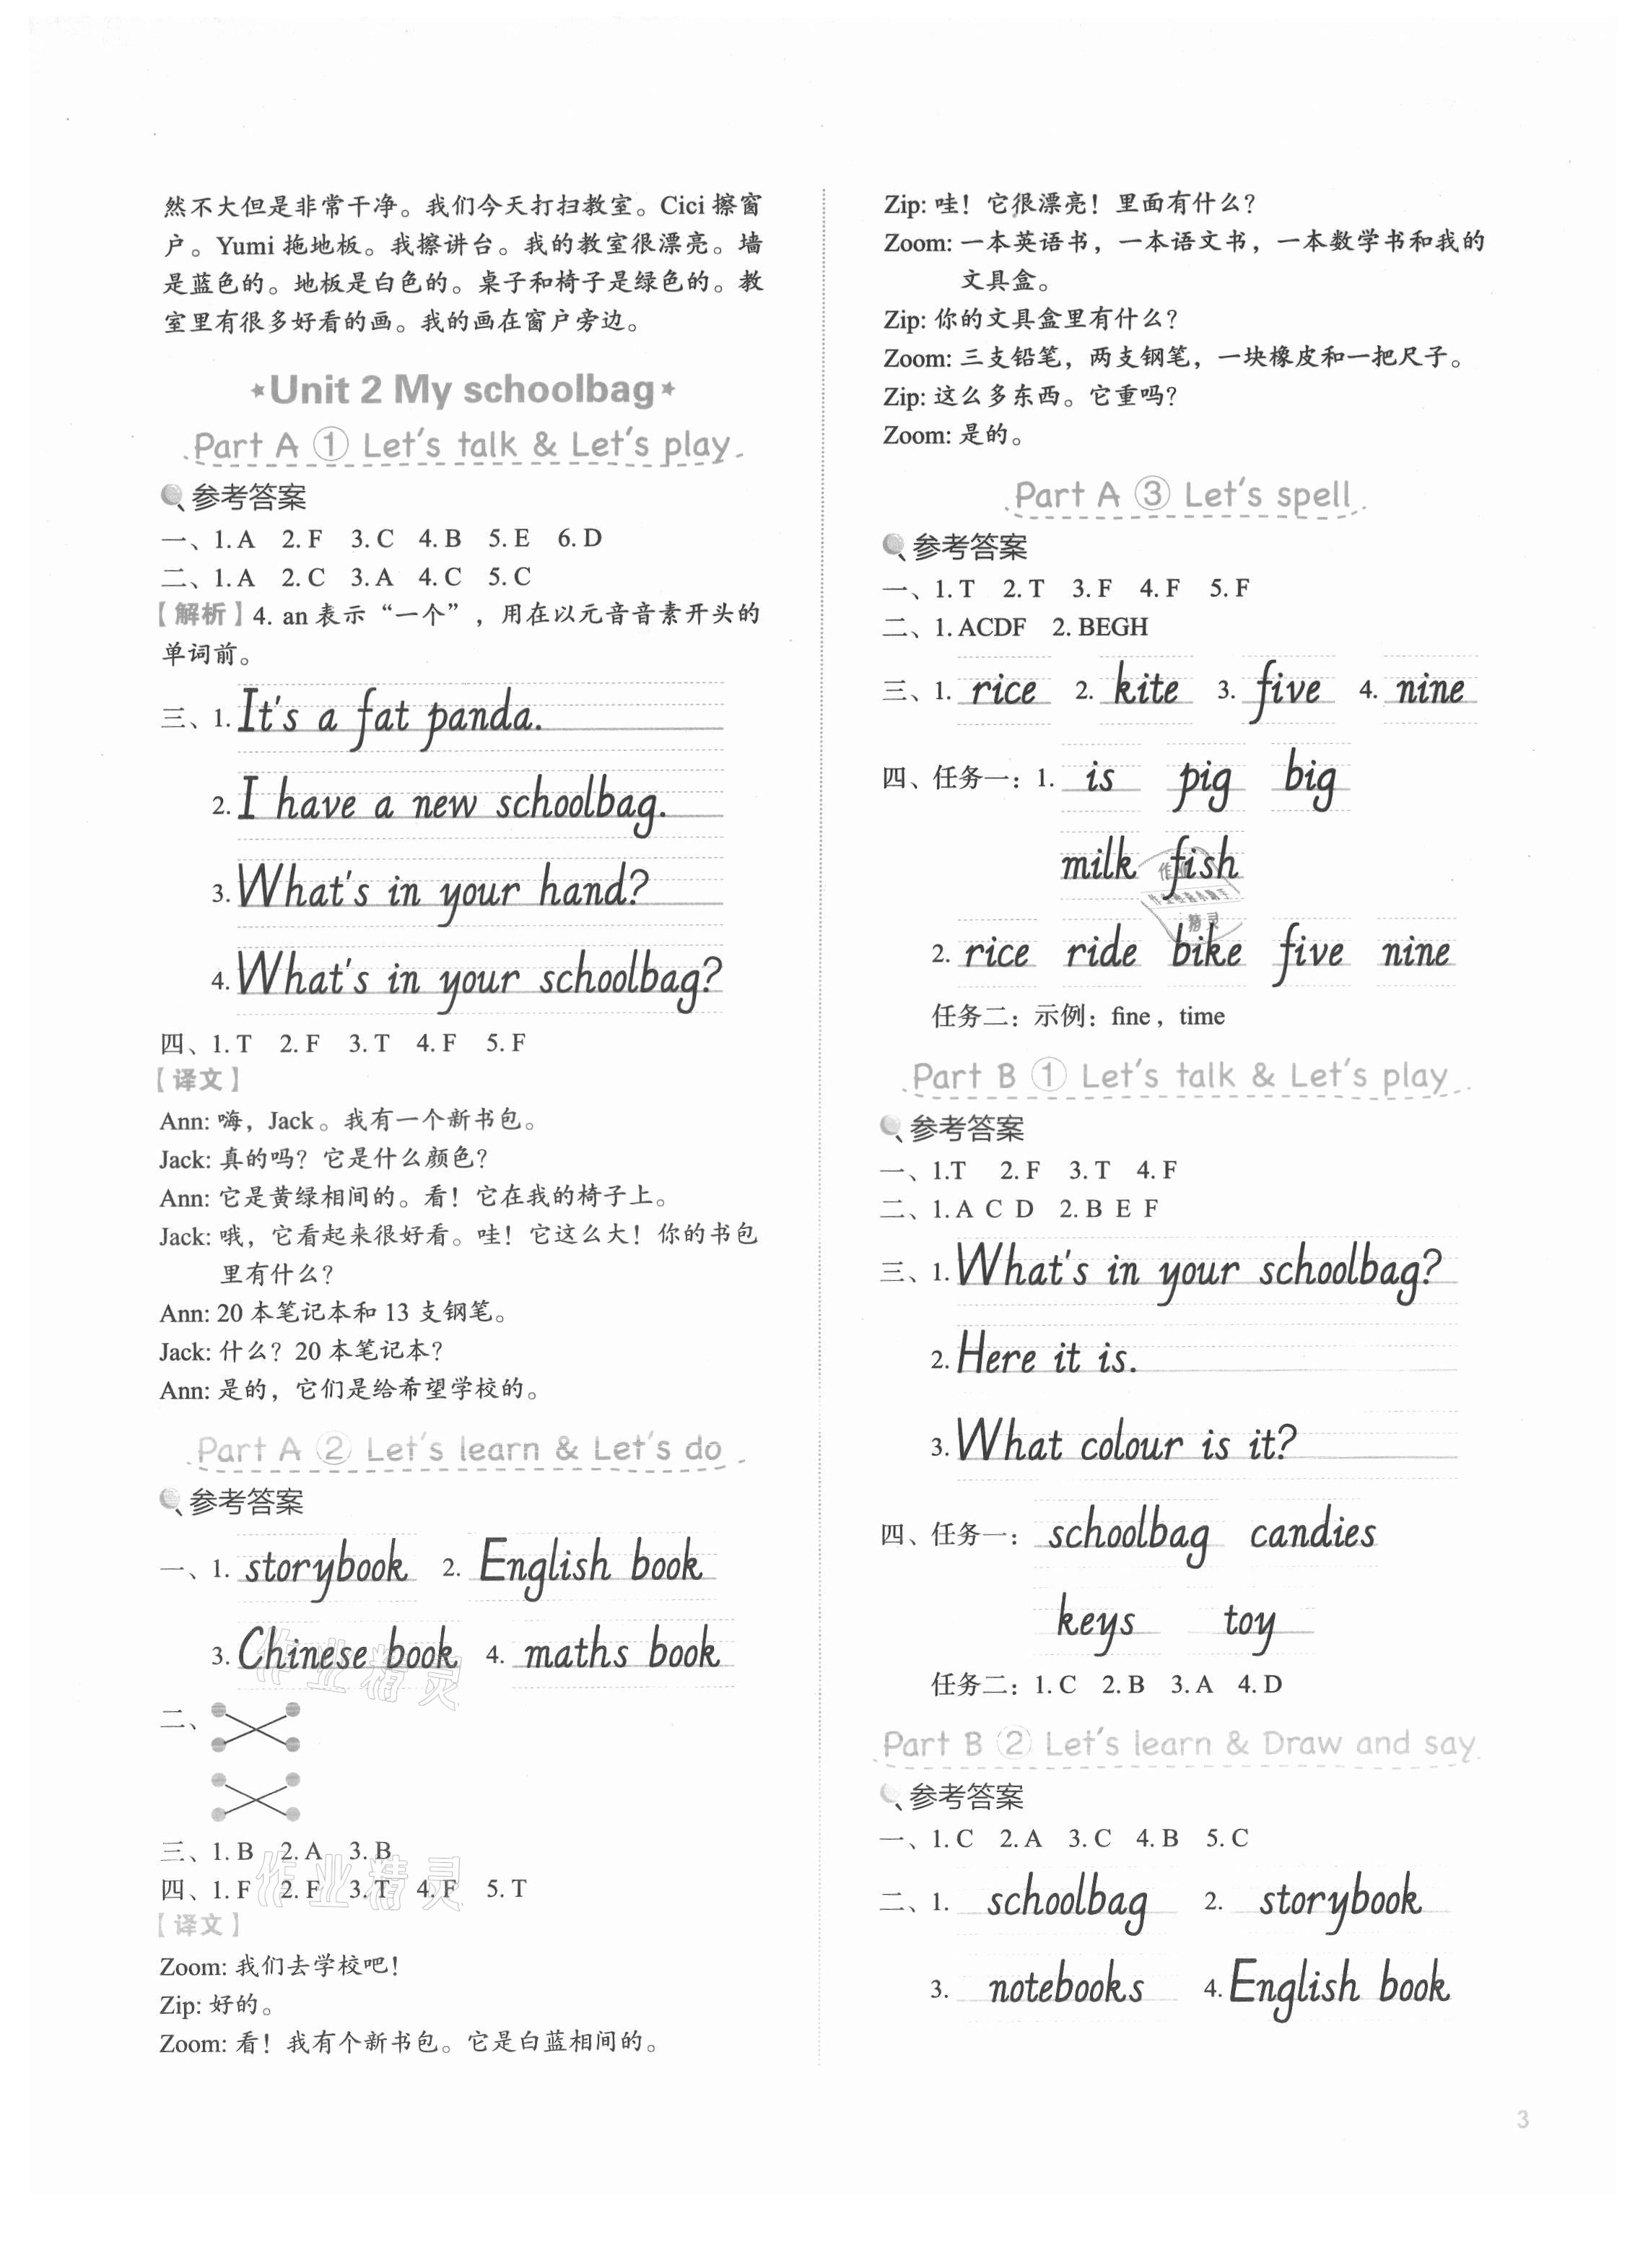 然不大但是非常干净。我们今天打扫教室。Cici 擦窗
户。Yumi 拖地板。我擦讲台。我的教室很漂亮。墙
是蓝色的。地板是白色的。桌子和椅子是绿色的。教
室里有很多好看的画。我的画在窗户旁边。
Unit 2 My schoolbag
Part A ① Let's talk & Let's play
参考答案
一、1. A 2. F 3. C 4. B 5. E 6. D
二、1. A 2. C 3. A 4. C 5. C
【解析】4. an 表示“一个”，用在以元音音素开头的
单词前。
三、1. It's a fat panda.
2. I have a new schoolbag.
3. What's in your hand?
4. What's in your schoolbag?
四、1. T 2. F 3. T 4. F 5. F
【译文】
Ann: 嗨，Jack。我有一个新书包。
Jack: 真的吗？它是什么颜色？
Ann: 它是黄绿相间的。看！它在我的椅子上。
Jack: 哦，它看起来很好看。哇！它这么大！你的书包
里有什么？
Ann: 20 本笔记本和 13 支钢笔。
Jack: 什么？20 本笔记本？
Ann: 是的，它们是给希望学校的。
Part A ② Let's learn & Let's do
参考答案
一、1. storybook 2. English book
3. Chinese book 4. maths book
二、
三、1. B 2. A 3. B
四、1. F 2. F 3. T 4. F 5. T
【译文】
Zoom: 我们去学校吧！
Zip: 好的。
Zoom: 看！我有个新书包。它是白蓝相间的。
Zip: 哇！它很漂亮！里面有什么？
Zoom: 一本英语书，一本语文书，一本数学书和我的
文具盒。
Zip: 你的文具盒里有什么？
Zoom: 三支铅笔，两支钢笔，一块橡皮和一把尺子。
Zip: 这么多东西。它重吗？
Zoom: 是的。
Part A ③ Let's spell
参考答案
一、1. T 2. T 3. F 4. F 5. F
二、1. ACDF 2. BEGH
三、1. rice 2. kite 3. five 4. nine
四、任务一：1. is pig big
milk fish
2. rice ride bike five nine
任务二：示例：fine，time
Part B ① Let's talk & Let's play
参考答案
一、1.T 2. F 3. T 4. F
二、1. A C D 2. B E F
三、1. What's in your schoolbag?
2. Here it is.
3. What colour is it?
四、任务一：schoolbag candies
keys toy
任务二：1. C 2. B 3. A 4. D
Part B ② Let's learn & Draw and say
参考答案
一、1. C 2. A 3. C 4. B 5. C
二、1. schoolbag 2. storybook
3. notebooks 4. English book
3
作业精灵
作业精灵